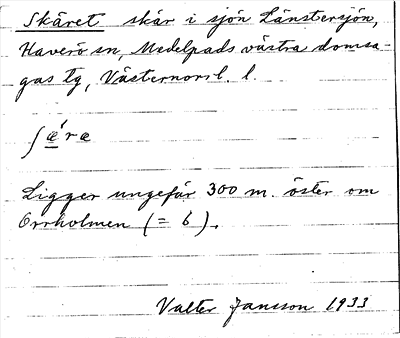 Skäret skär i sjön Länstersjön,
Haverö sn, Medelpads västra domsa-
gas tg, Västernorrl. l.
ʃǽræ
Ligger ungefär 300 m. öster om
Orrholmen (= 6).
Valter Jansson 1933